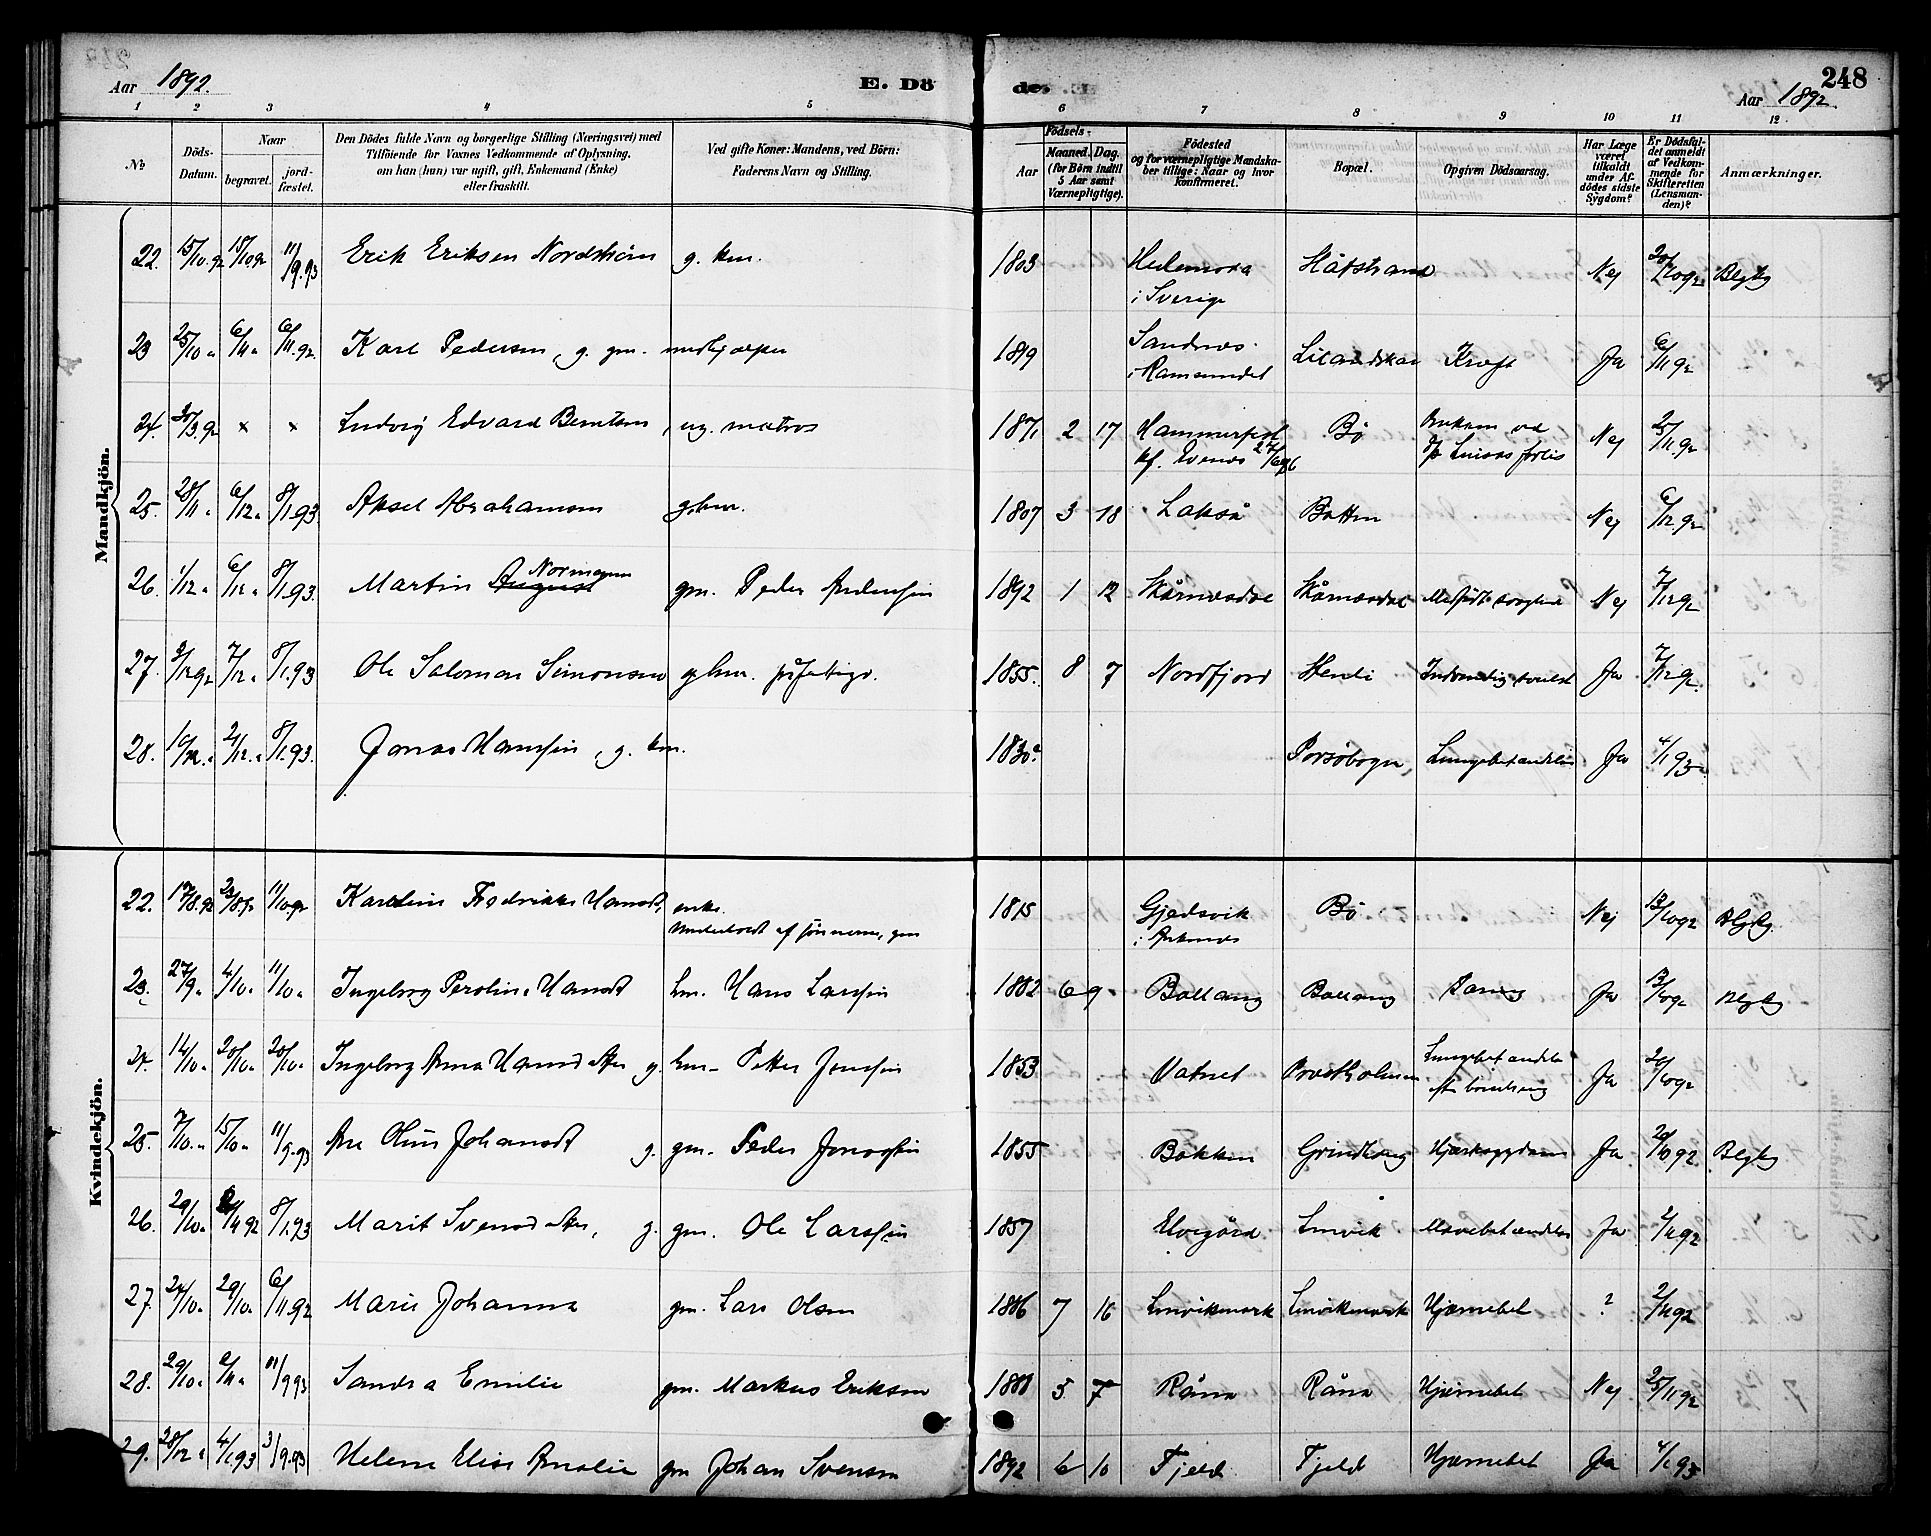 Aar 1892.
E. Dö
de.
248
Aar 1892
1 2 3 4 5 6 7 8 9 10 11 12
No
Döds-Datum.
Naar
begravet.
jord-fæstet.
Den Dödes fulde Navn og borgerlige Stilling (Næringsvei) med
Tilföiende for Voxnes Vedkommende af Oplysning,
om han (hun) var ugift, gift, Enkemand (Enke)
eller fraskilt.
Ved gifte Koner: Mandens, ved Börn:
Faderens Navn og Stilling.
Födsels-
Aar
Maaned. Dag.
(for Börn indtil
5 Aar samt
Værnepligtige).
Födested
og for værnepligtige Mandska-
ber tillige: Naar og hvor
konfirmeret.
Bopæl.
Opgiven Dödsaarsag.
Har Læge
været
tilkaldt
under Af-
dödes sidste
Sygdom?
Er Dödsfal-
det anmeldt
af Vedkom-
mende for
Skifteretten
(Lensman-
den)?
Anmærkninger.
Mandkjön.
22. 15/10.92 18/1092 11/9.93 Erik Eriksen Nordström g. km. 1803 Hedemora Håfstrand Nej 20/1092 Blgby
i Sverige
23 25/10 " 6/11 " 6/11.92 Karl Pedersen, g. gm. 1819 Sandnes Lilandskar Kræft Ja 6/11 92
i Ramsundet
24. 3.92 × × Ludvig Edvard Berntsen, ug. matros 1871 2 17 Hammerfest Bö Nej 25/11.92
kf. Evenes
25. 28/11 " 6/12 " 8/1.93. Aksel Abrahamsen 1807 3 18 Lakså Botten Nej 6/12.92
26. 1/12 " 6/12 " 8/1.93. Martin August Normann gm. Peder Andersen 1892 1 12 Skårnesdal Skårnesdal Nej 7/1292
27. 3/1292 7/12 " 8/1.93 Ole Salomon Simonsen 1855. 8 7 Nordfjord Stenli Indvendig svulst Ja 7/1292.
28. 21/12 " 8/1.93. Jonas Hansen, g. km. 1830 Porsöbogen, Lungebetændelse Ja 4/1 93
Kvindekjön.
22. 17/8.92 23/892 11/1092 Karoline Fredrikke Hansdt, enke. 1815 Gjedsvik Bö Nej 13/1092 Blgby.
Underholdt af sönnerne, gm
23. 27/9 " 4/10 " 11/10 " Ingeborg Peroline Hansdt hm. Hans Larsen 1882 6 9 Ballang Ballang Ja 13/1092 Blgby
24. 14/10 " 20/10 " 20/10 " Ingeborg Anna Hansdatter g. hm. Petter Jensen 1853 Vatnet Provstholmen Lungebetændelse Ja 20/1092
25. 7/10 " 15/10 " 11/9.93 Ane Oline Johansdt g. gm. Peder Jonassen 1855 Bakken Grindhaug Hjertesygdom Ja 20/1092 Blgby
26. 29/10 " 8/1.93 Marit Svensdatter, g. gm. Ole Larsen 1857 Elvegård Lenvik Mavebetændelse Ja 2/11.92
27. 24/10 " 29/10 " 6/11.92 Marie Johanna gm. Lars Olsen 1886 7 16 Lenvikmark Lenvikmark Hjernebet ? 2/1192
28. 29/10 " 6/11 " 11/993 Sandra Emilie gm. Markus Eriksen 1888 5 7 Råna Råna Hjernebet Nej 25/1192
29. 28/12 " 4/1.93 3/9.93 Helene Elise Amalie gm Johan Svensen 1892 6 10 Fjeld Fjeld Hjernebet Ja 4/1 93